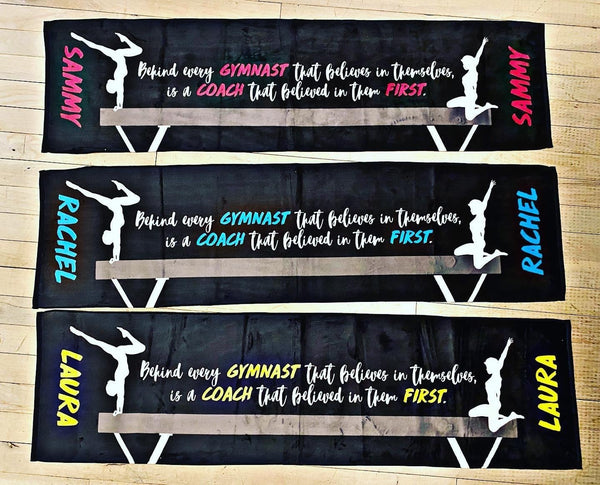 SAMMY
Behind every GYMNAST that believes in themselves,
is a COACH that believed in them FIRST.
SAMMY
RACHEL
Behind every GYMNAST that believes in themselves,
is a COACH that believed in them FIRST.
RACHEL
LAURA
Behind every GYMNAST that believes in themselves,
is a COACH that believed in them FIRST.
LAURA